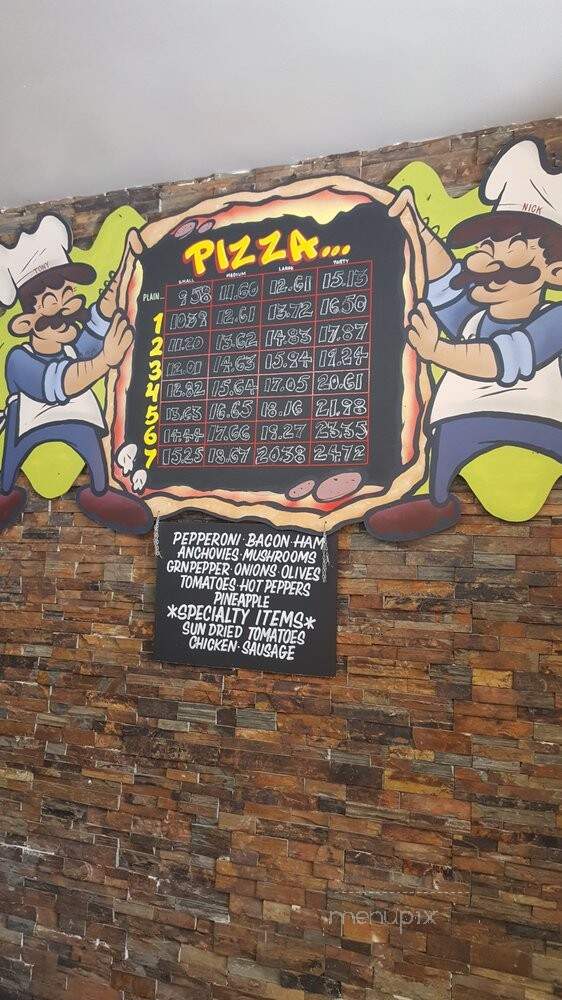 TONY
NICK
PIZZA...
SMALL MEDIUM LARGE PARTY
PLAIN... 9.58 11.60 12.61 15.13
1 10.39 12.61 13.72 16.50
2 11.20 13.62 14.83 17.87
3 12.01 14.63 15.94 19.24
4 12.82 15.64 17.05 20.61
5 13.63 16.65 18.16 21.98
6 14.44 17.66 19.27 23.35
7 15.25 18.67 20.38 24.72
PEPPERONI·BACON·HAM
ANCHOVIES·MUSHROOMS
GRNPEPPER·ONIONS·OLIVES
TOMATOES·HOT PEPPERS
PINEAPPLE
*SPECIALTY ITEMS*
SUN DRIED TOMATOES
CHICKEN·SAUSAGE
menupix